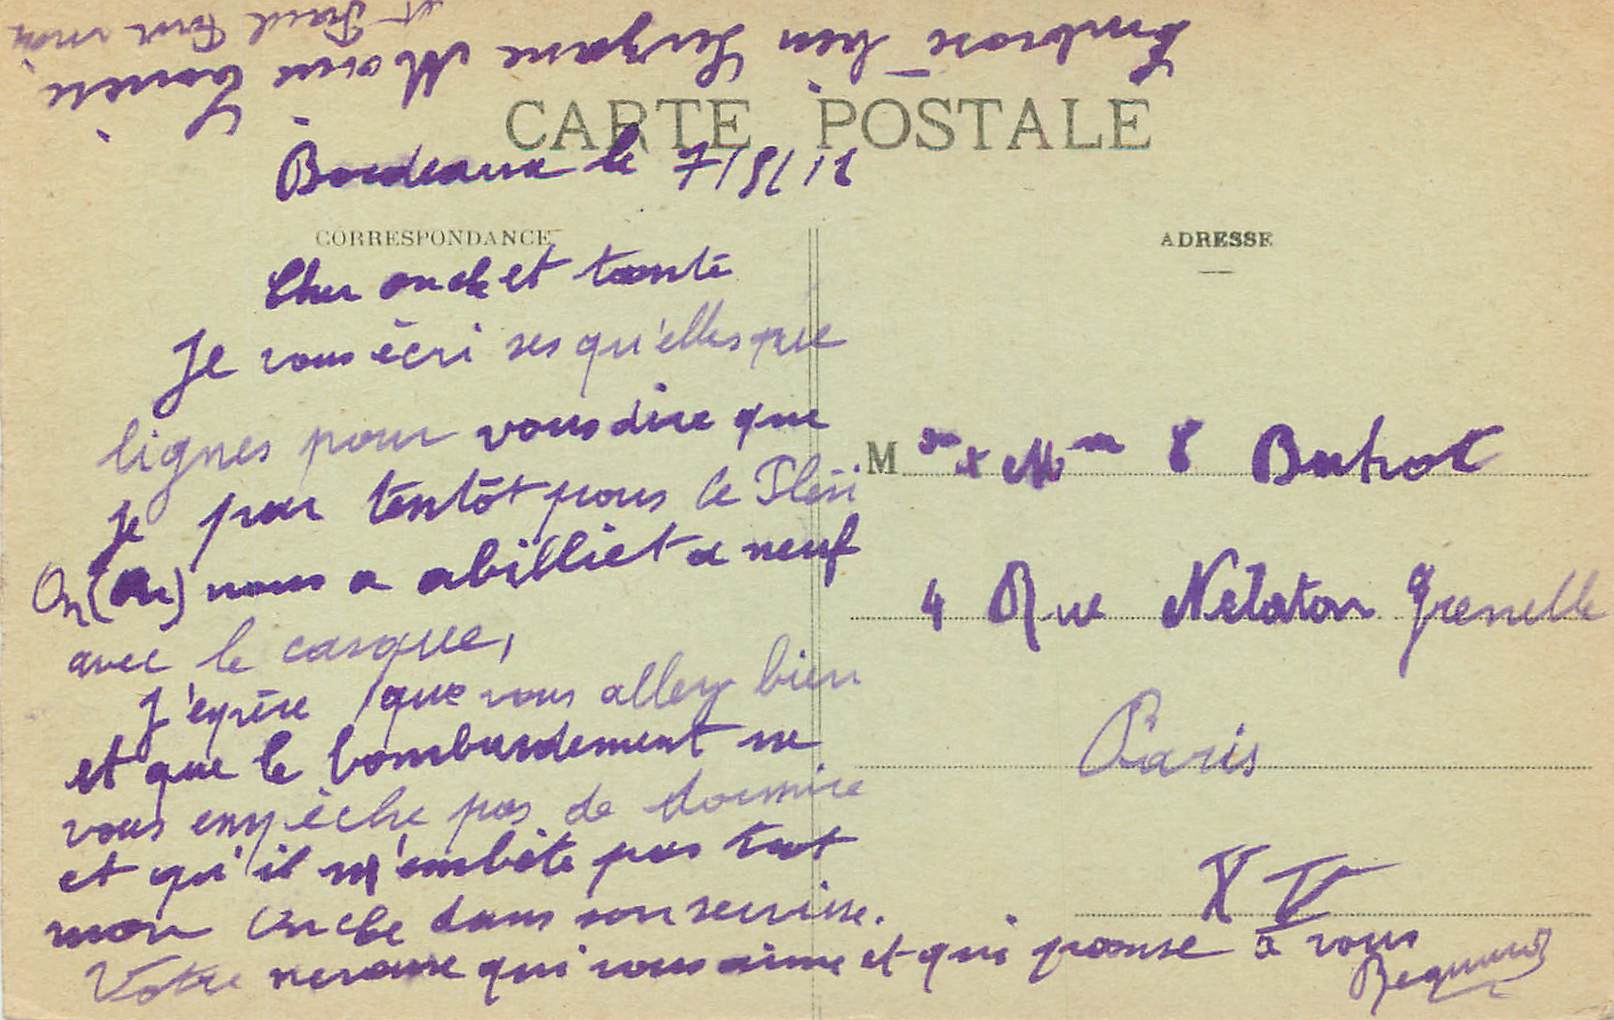 Embrasé bien Suzane Marie Louise
et Paul pour moi
CARTE POSTALE
Bordeaux le 7/9/18
CORRESPONDANCE
ADRESSE
Cher oncle et tante
Je vous écri ses qu'elles que
lignes pour vous dire que
je par tentôt pour le
On (on) nous a abilliet a neuf
avec le casque,
J'epère que vous allez bien
et que le bombardement ne
vous empèche pas de dormire
et qu'il n'embète pas tout
mon oncle dans son servisse.
Votre neveu qui vous aime et qui panse à vous
Mr et Mme Butrot
4 Rue Nélaton Grenelle
Paris
XV